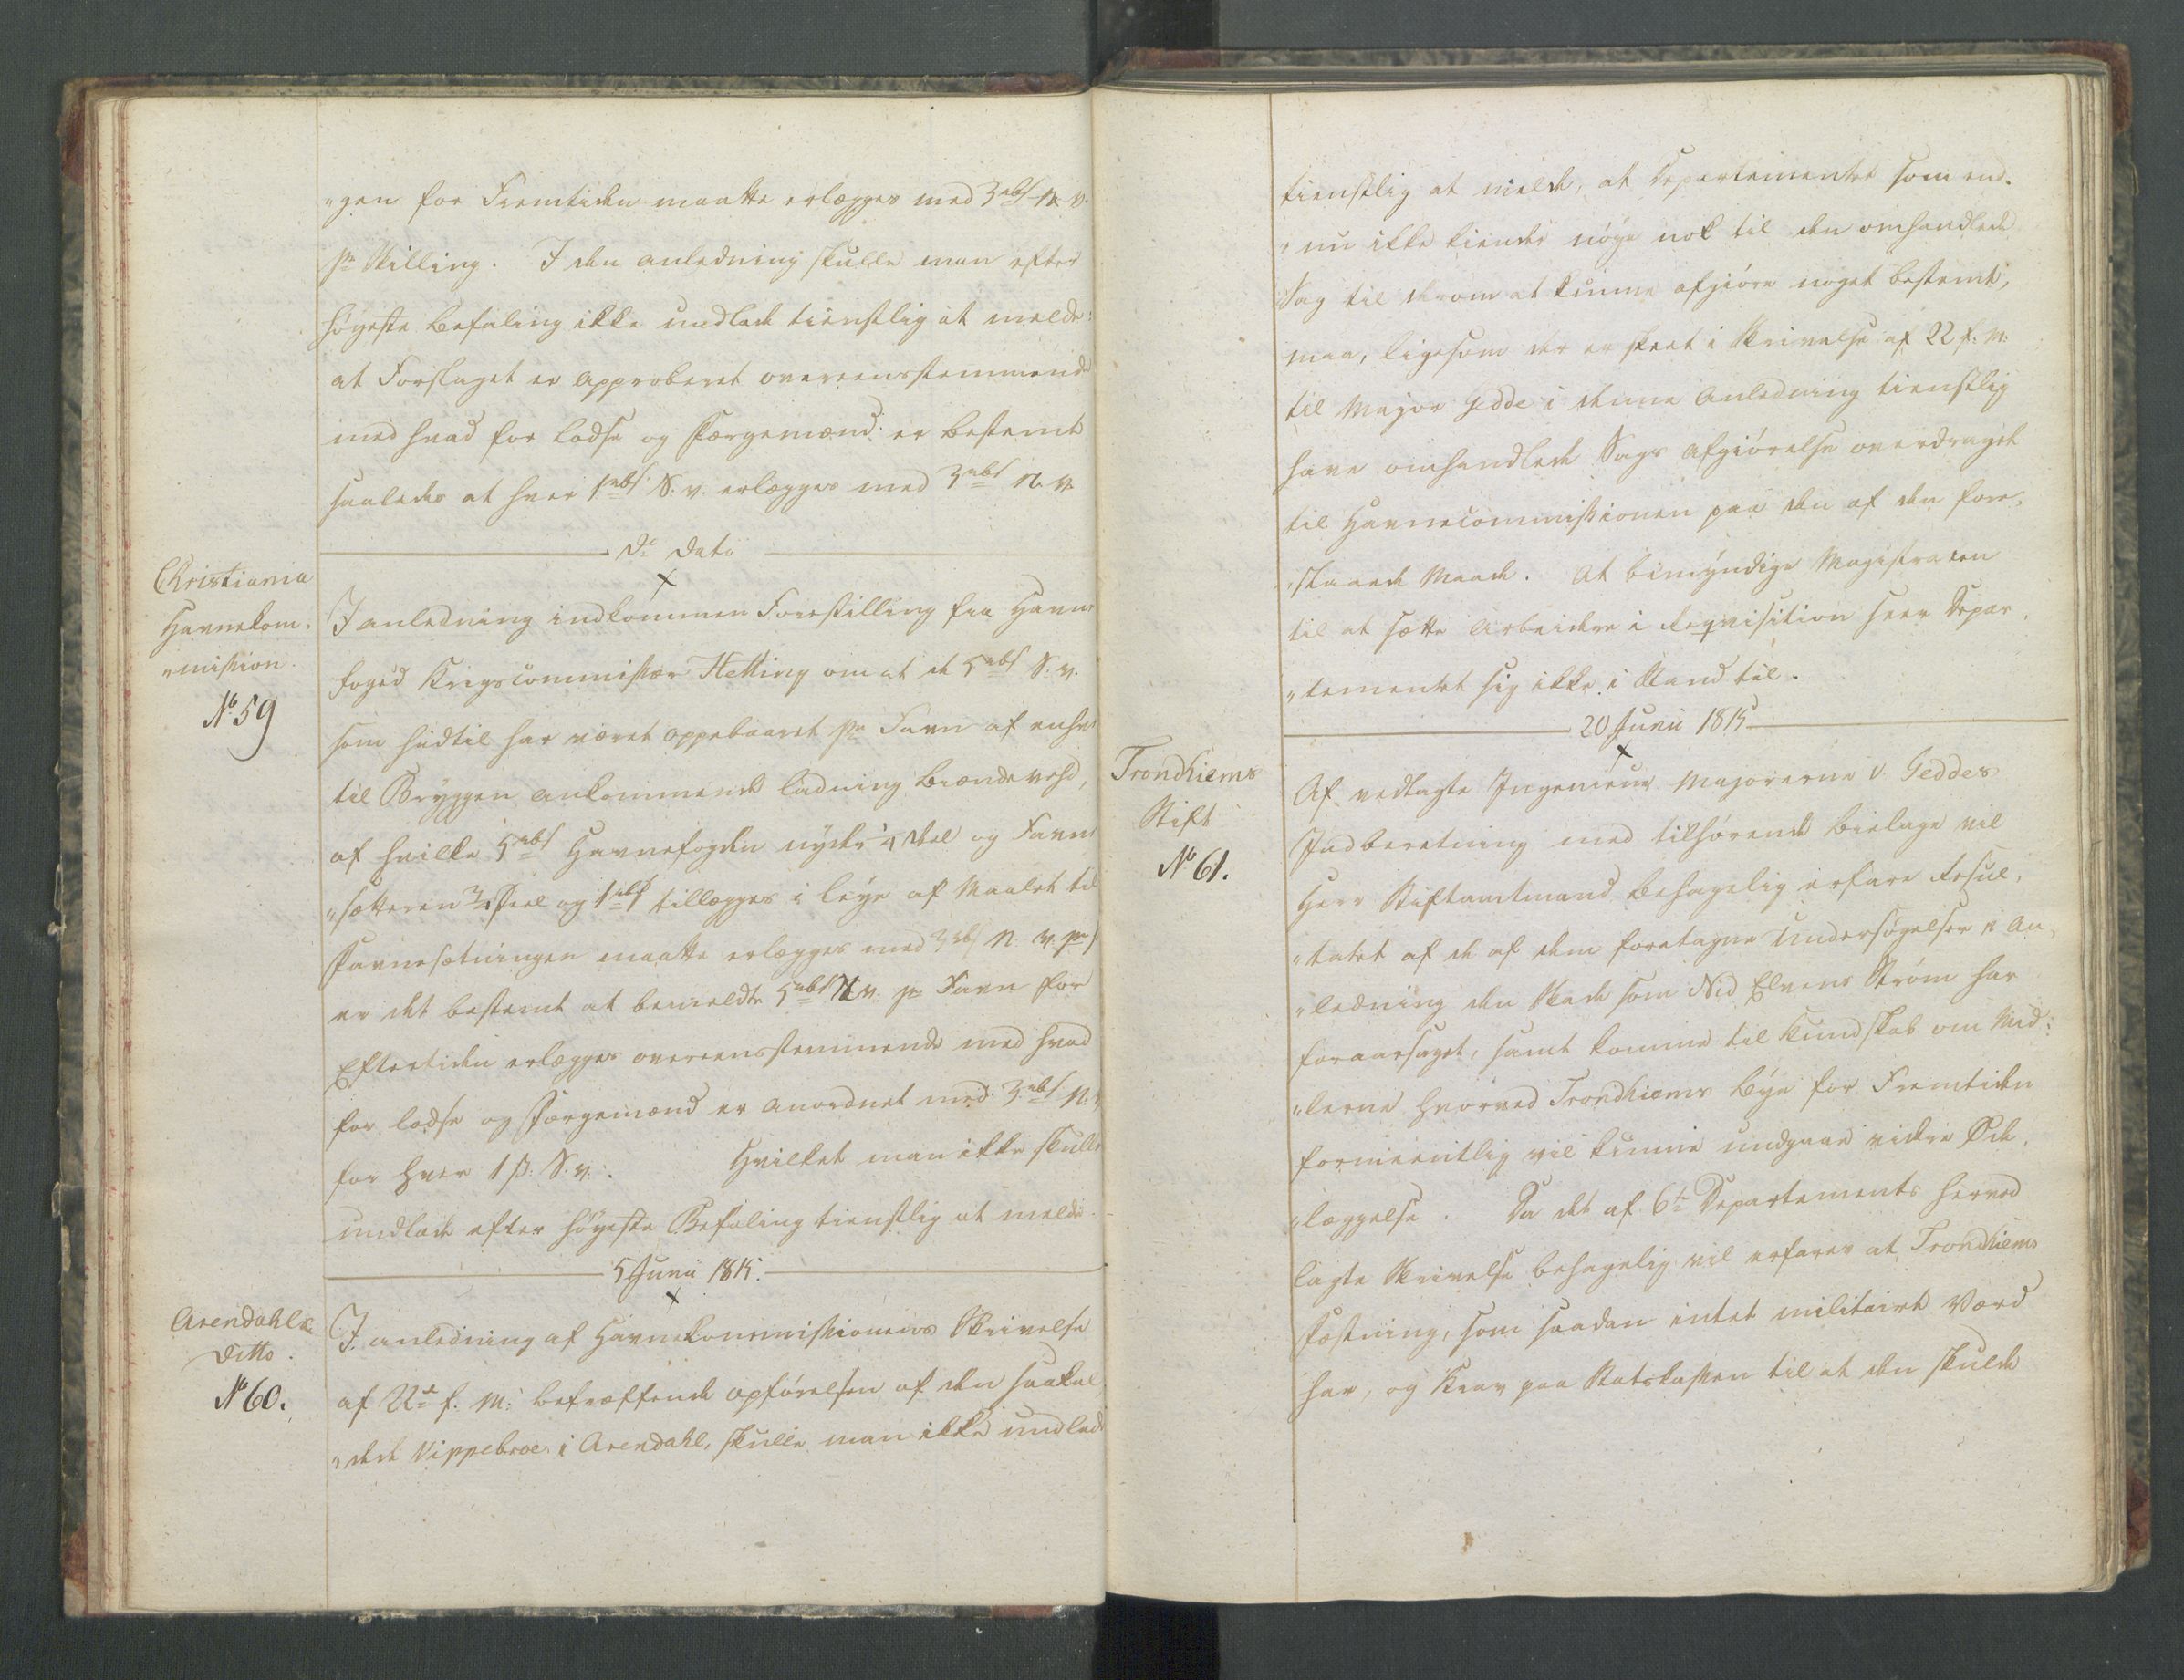 „gen for Fremtiden maatte erlægges med 3 rbs N. v.
pr Skilling. I den anledning skulle man efter
höyeste Befaling ikke undlade tienstlig at melde:
at Forslaget er approberet overeensstemmende
med hvad for Lodse og Færgemænd er bestemt
saaledes at hver 1 rbs S. v. erlægges med 3 rbs N. v.
Do Dato
Christiania
Havnekom-
„mission.
No 59
I anledning indkommen Forestilling fra Havne
foged Krigscommissær Hetting om at de 5 rbs S. v.
som hidtil har været oppebaaret pr Favn af enhver
til Bryggen ankommende ladning Brændeved,
af hvilke 5 rbs Havnefogden nyder 1/4 deel og Favne
„sætteren 3/4 Deel og 1 rbs tillægges i leye af Maalet til
Favnesætningen maatte erlægges med 3 rbs N. v. pr s
er det bestemt at bemeldte 5 rbs N. v. pr Favn for
Eftertiden erlægges overeensstemmende med hvad
for Lodse og Færgemænd er anordnet med 3 rbs N. v
for hver 1 s. S. v. Hvilket man ikke skulle
undlade efter höyeste Befaling tienstlig at melde.
5 Junii 1815.
Arendahls
Ditto.
No 60.
I anledning af Havnekommissionens Skrivelse
af 22de f. M. betræffende opförelsen af den saakal
„dede Vippebroe i Arendahl, skulle man ikke undlade
tienstlig at melde, at Departementet som end-
„nu ikke kiender nöye nok til den omhandlede
Sag til derom at kunne afgiöre noget bestemt,
maa, ligesom der er skeet i Skrivelse af 22 f. M.
til Major Gedde i denne Anledning tienstlig
have omhandlede Sags Afgiörelse overdraget
til Havnecommissionen paa den af den fore-
„slaaede Maade. At bemyndige Magistraten
til at sætte Arbeidere i Reqvisition seer Depar
„tementet sig ikke i Stand til.
20 Junii 1815
Trondhiems
Stift
No 61.
Af vedlagte Ingenieur Majorerne v. Geddes
Indberetning med tilhörende Bielage vil
Herr Stiftamtmand behagelig erfare Resul-
„tatet af de af dem foretagne Undersögelser i An-
„ledning den Skade som Nid Elvens Ström har
foraarsaget, samt komme til Kundskab om Mid-
„lerne hvorved Trondhiems Bye for Fremtiden
formeentlig vil kunne undgaae videre Öde-
„læggelse. Da det af 6te Departements herved
lagte Skrivelse behagelig vil erfares at Trondhiems
Fæstning, som saadan intet militairt Værd
har, og Krav paa Statskassen til at den skulde